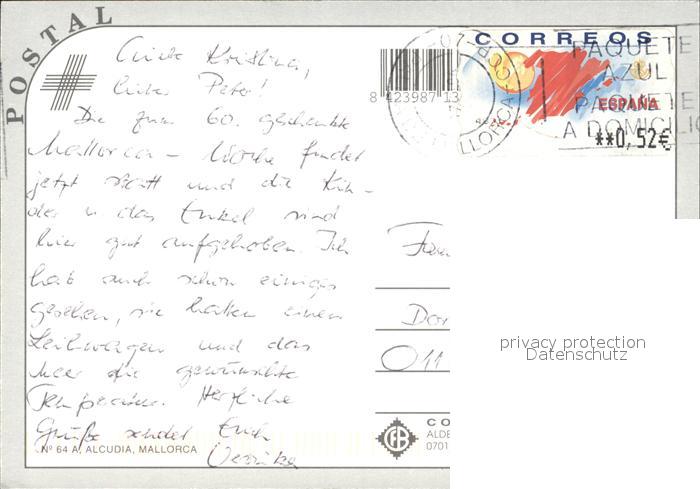 POSTAL
Liebe Kristina,
lieber Peter!
Die zum 60. geschenkte
Mallorca - Woche findet
jetzt statt und die Kin-
der u das Enkel sind
hier gut aufgehoben. Ich
hab auch schon einiges
gesehen, sie hatten einen
Leihwagen und das
Meer die gewünschte
Temperatur. Herzliche
Grüße sendet Euch
Nº 64 A, ALCUDIA, MALLORCA
8 423987 13
CORREOS
ESPAÑA
**0,52€
PAQUETE
AZUL
PAQUETE
A DOMICILIO
MALLORCA
Fam
Dor
011
privacy protection
Datenschutz
CO
ALDE
0701